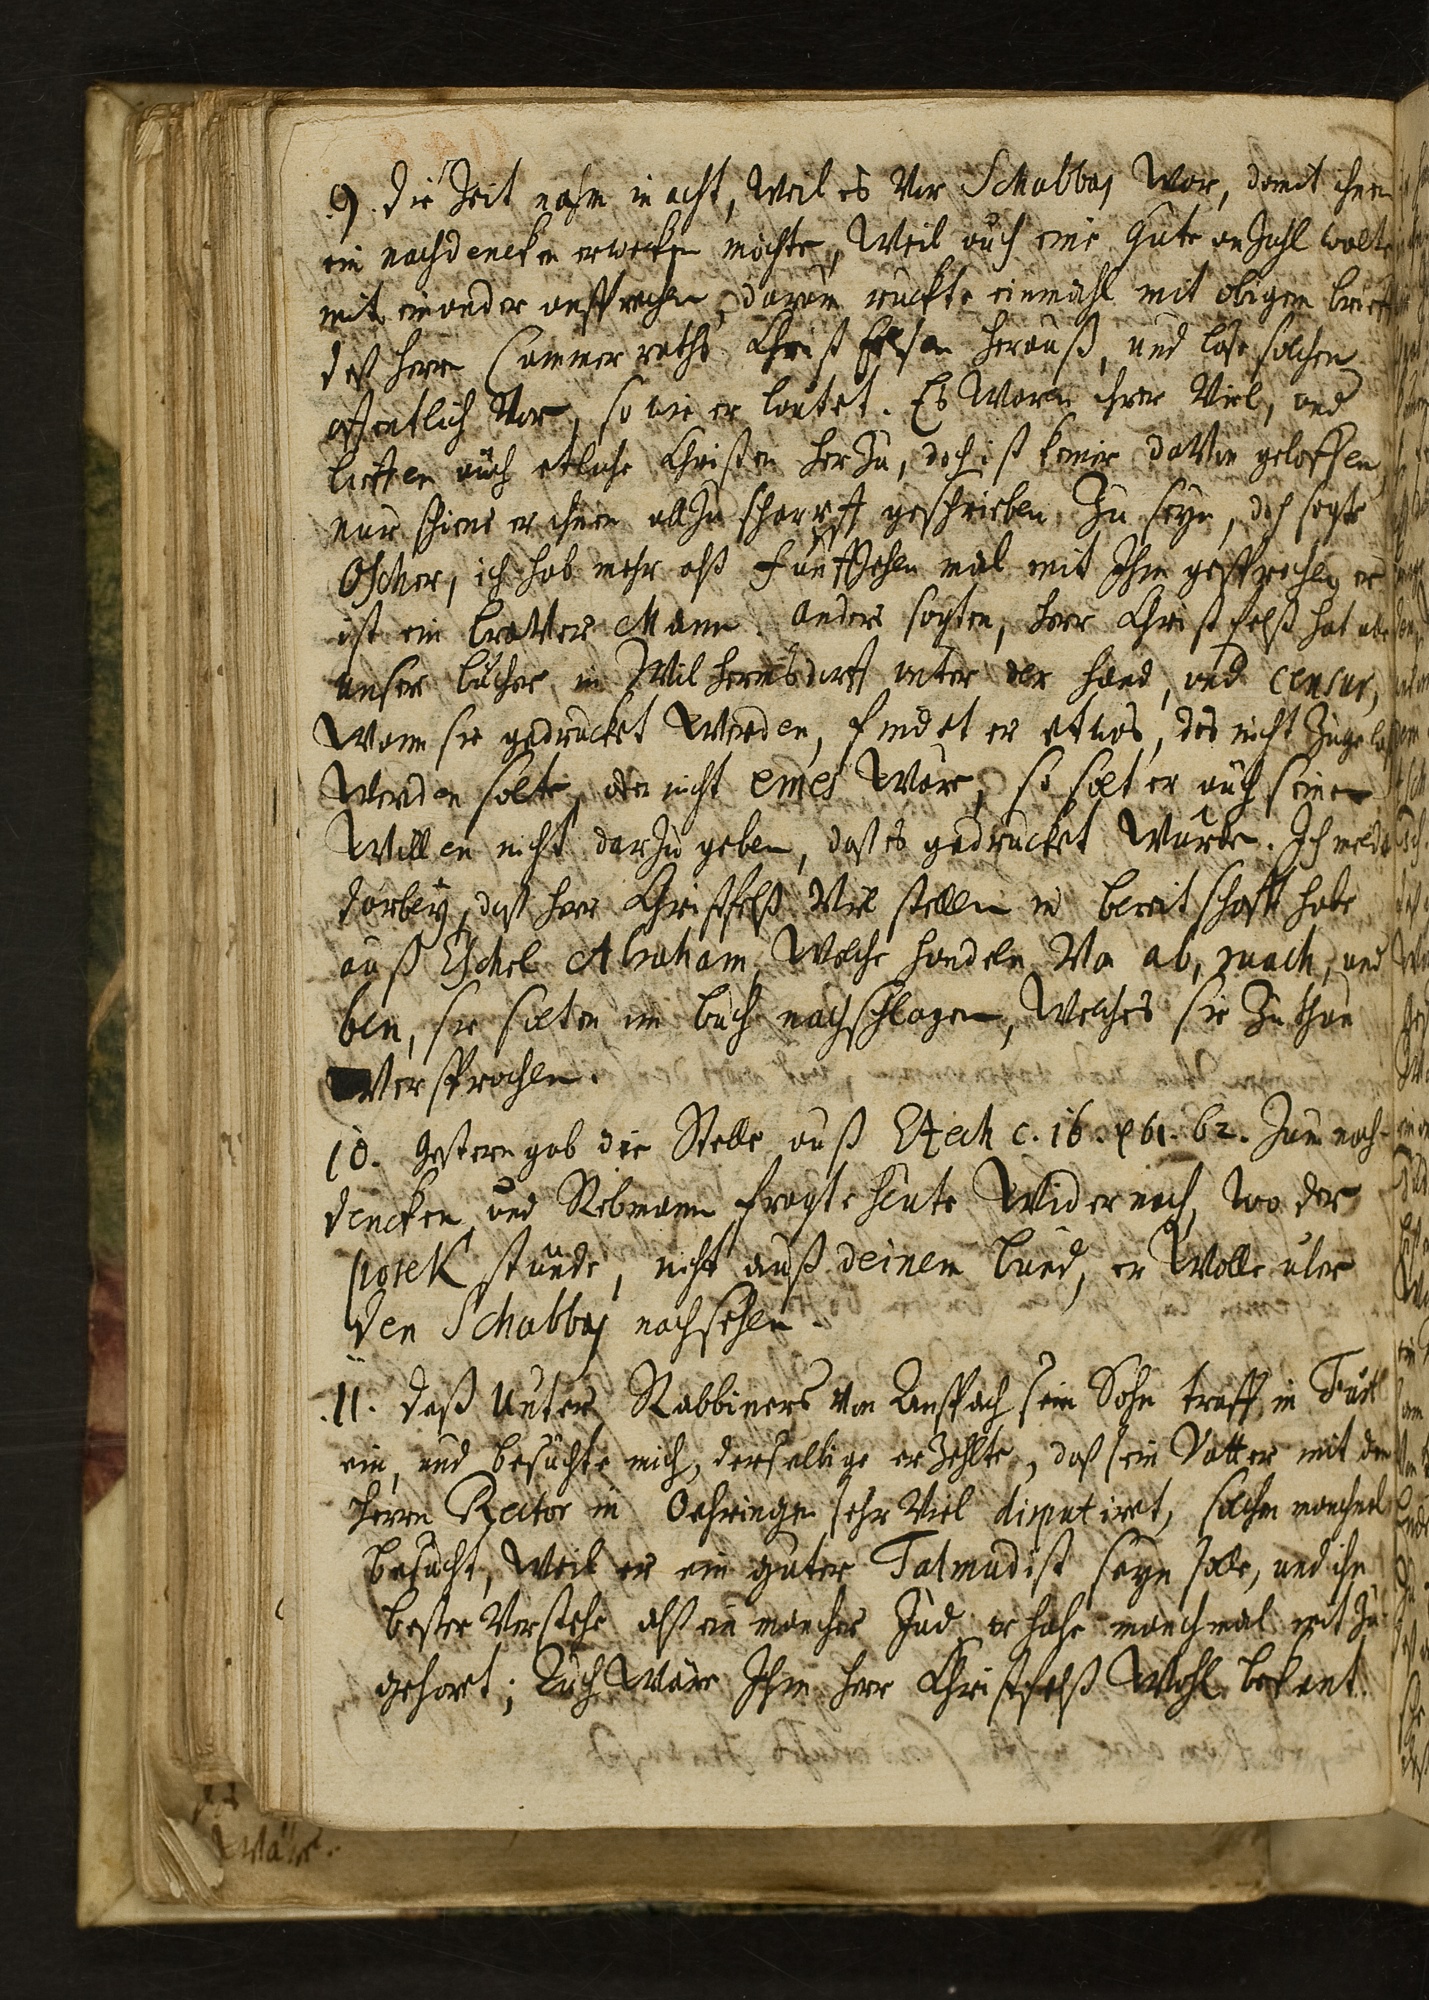 9. Die Zeit nahm in acht, weil es vor Schabbas war, damit ihnen
ein nachdencken erwecken möchte, Weil auch eine gute anzahl wolte
mit einander ansprechen, darum ruckte einmahl mit obigen brieff
deß herrn Cammerraths Christfelsen herauß, und lase solchen
offentlich vor, so wie er lautet. Es waren ihrer viel, und
lieffen auch etliche Christen herzu, doch ist keiner davon geloffen,
nur schiene er ihnen allzu scharff geschrieben zu seyn, doch sagte
Oscher, ich hab mehr alß funffzehen mal mit Ihm gesprochen, er
ist ein braver Mann. Andere sagten, herr Christfelß hat aber
unser bücher in Wilhermsdorff unter der hand, und censur,
Wann sie gedrucket werden, findet er etwas, das nicht zugelassen
werden solte, oder nicht emes wäre, so solt er auch seinen
Willen nicht darzu geben, daß es gedrucket wurde. Ich melde
darbey, daß herr Christfelß viel stellen in bereitschafft habe
auß Eschel Abraham, welche handeln von ab, ruach, und
ben, sie solten im buch nachschlagen, welches sie zu thun
versprachen.
10. Gestern gab die Stelle auß Ezech c. 16. 61. 62. zum nach-
dencken, und Rebmann fragte heute wider nach, wo der
posek stünde, nicht auß deinem bund, er wolle uber
den Schabbas nachsehen.
11. Deß Unter Rabbiners von Anspach sein Sohn traff in Fürt
ein, und besuchte mich, derselbige erzehlte, daß sein Vatter mit dem
herrn Rector in Oehringen sehr viel disputiret, solchen manchmal
besucht, weil er ein guter Talmudist seyn solle, und ihn
besser verstehe alß ein mancher Jud, er habe manchmal mit zu
gehört; Auch wäre Ihm herr Christfelß wohl bekant.